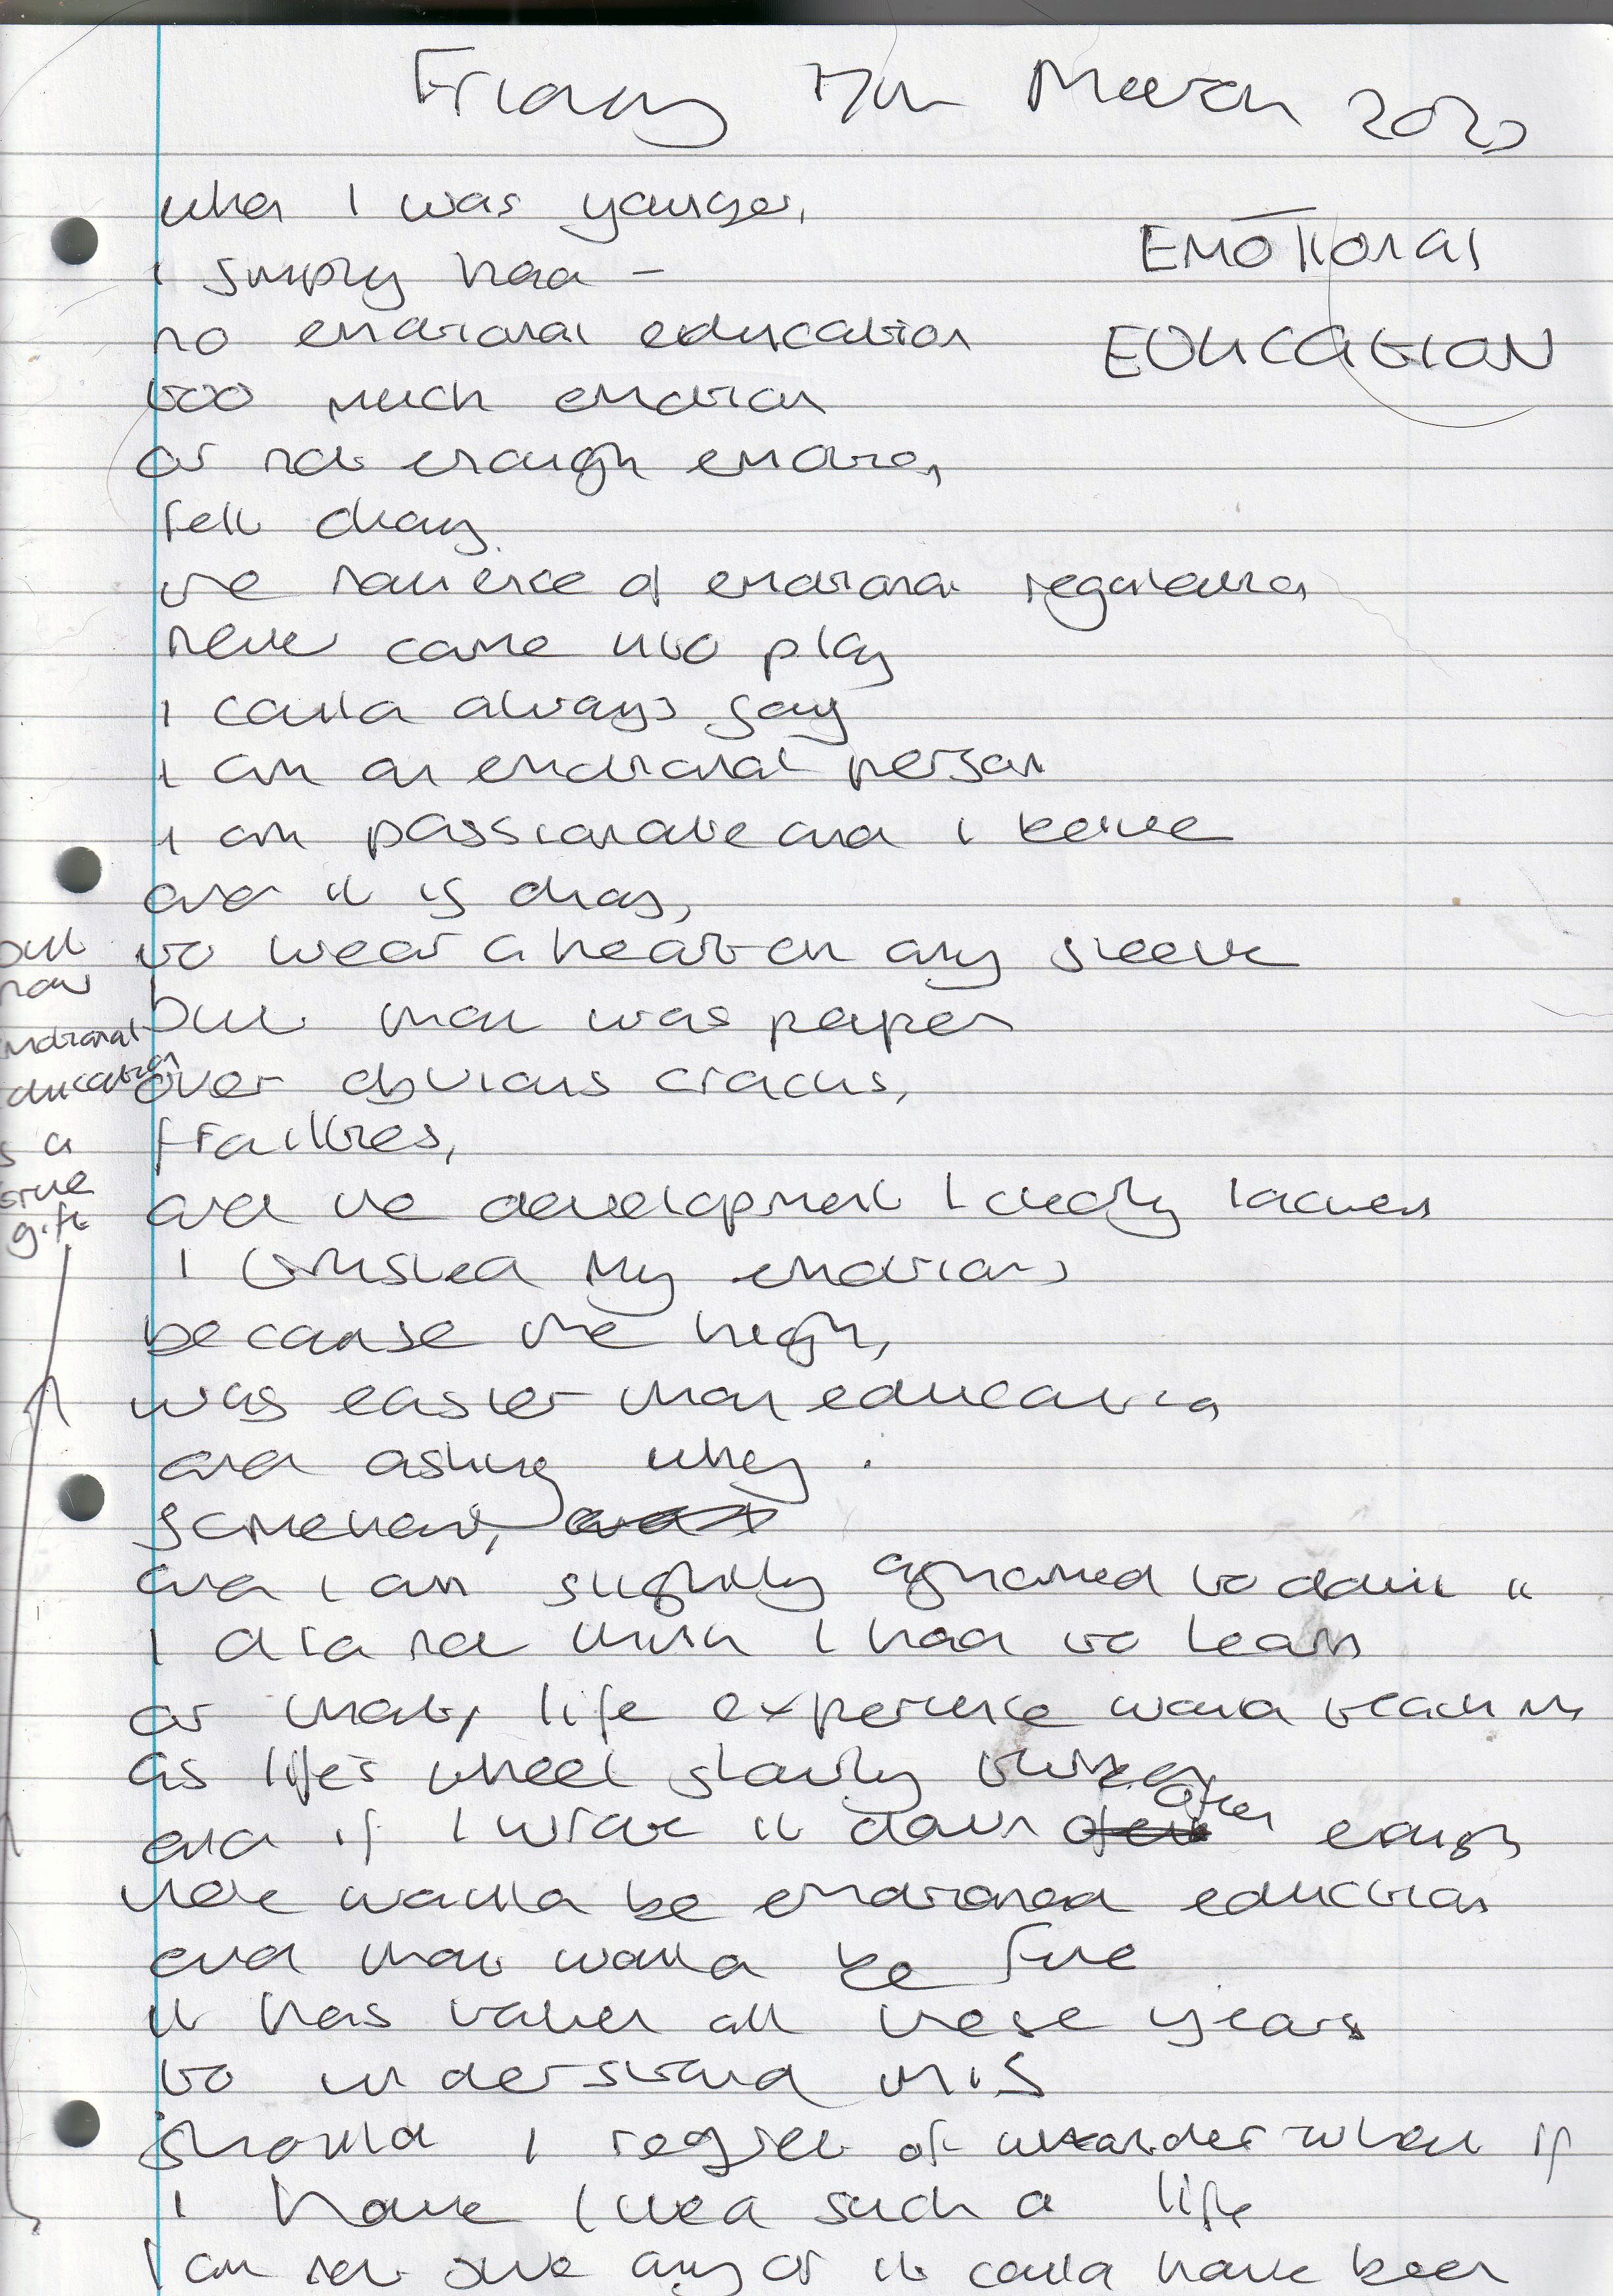 Friday 7th March 2025
EMOTIONAL
EDUCATION
when I was younger,
I simply had –
no emotional education
too much emotion
or not enough emotion,
felt okay.
the of emotional regulation
never came into play
I could always say
I am an emotional person
I am passionate and I believe
and it is okay,
to wear a heart on any sleeve
but that was paper
over obvious cracks,
frailties,
and the development I clearly lacked
I trusted my emotions
because the high,
was easier than education
and asking why.
somehow,
and I am slightly ashamed to admit it
I did not think I had to learn
or that, life experience would teach me
as life's wheel slowly turned
and if I wrote it down often enough
there would be emotional education
and that would be fine
it has taken all these years
to understand this
should I regret or wonder when if
I have lived such a life
I am not sure any of it could have been
but
now
emotional
education
is a
true
gift